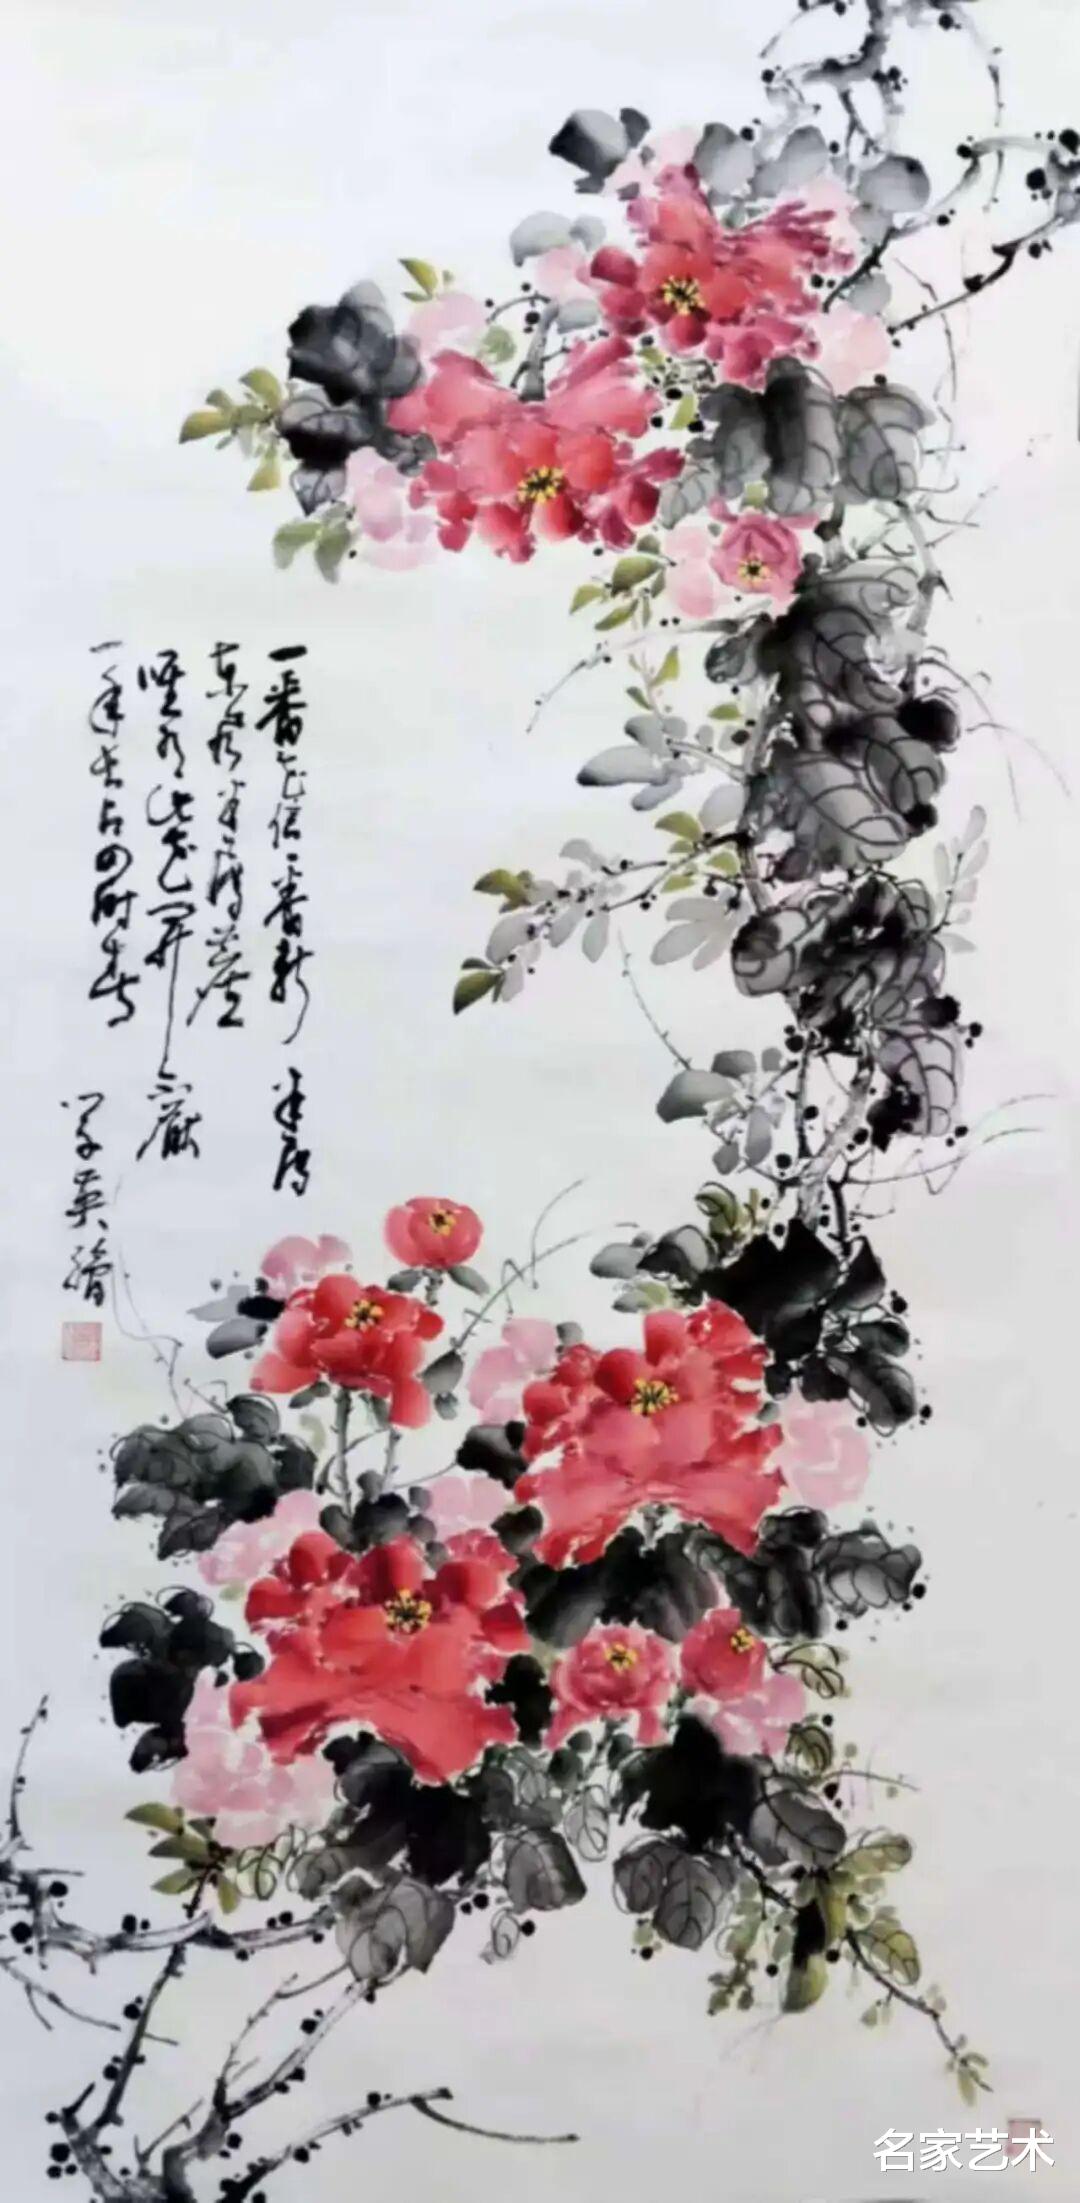 一番花信一番新半属
东风半属尘
唯有此花开不厌
一年长占四时春
英
名家艺术